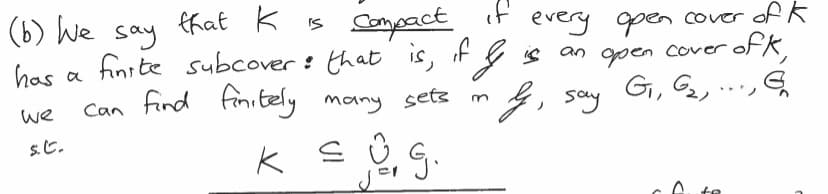 (b) We say that K is Compact if every open cover of K
has a finite subcover : that is, if 𝒢 is an open cover of K,
we can find finitely many sets in 𝒢, say G₁, G₂, ..., Gₙ
s.t.
K ⊆ ⋃ⱼ₌₁ⁿ Gⱼ.